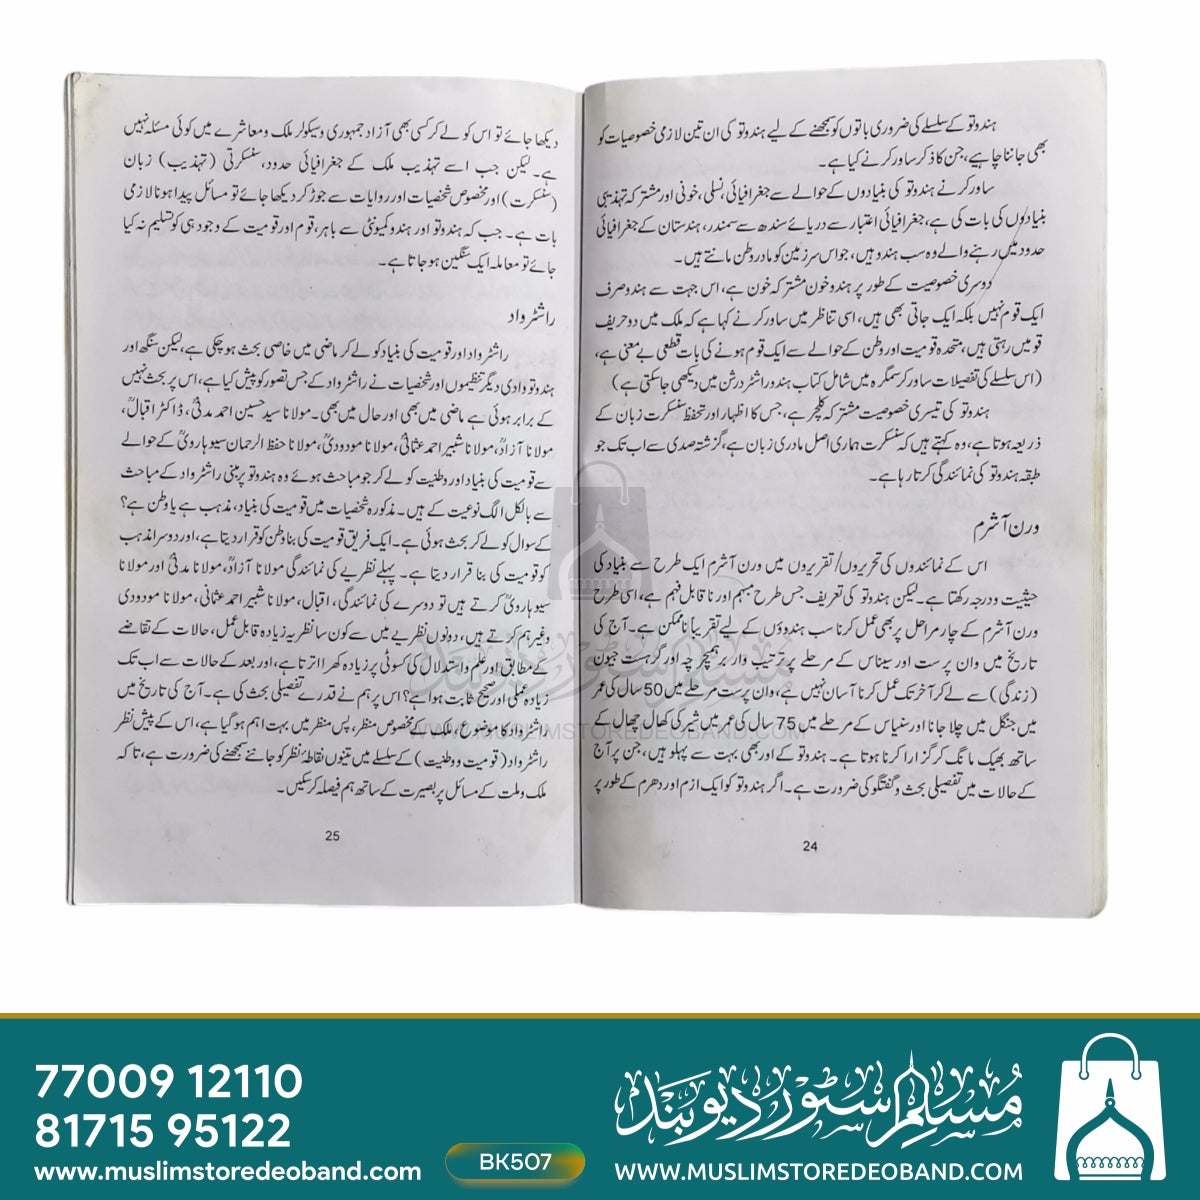 ہندوتو کے سلسلے کی ضروری باتوں کو سمجھنے کے لیے ہندوتو کی ان تین لازمی خصوصیات کو
بھی جاننا چاہیے، جن کا ذکر ساور کرنے کیا ہے۔
ساور کرنے ہندوتو کی بنیادوں کے حوالے سے جغرافیائی، نسلی، خونی اور مشترکہ تہذیبی
بنیادوں کی بات کی ہے، جغرافیائی اعتبار سے دریائے سندھ سے سمندر، ہندستان کے جغرافیائی
حدود میں رہنے والے وہ سب ہندو ہیں، جو اس سرزمین کو مادر وطن مانتے ہیں۔
دوسری خصوصیت کے طور پر ہندو خون مشترکہ خون ہے، اس جہت سے ہندو صرف
ایک قوم نہیں بلکہ ایک جاتی بھی ہیں، اسی تناظر میں ساور کرنے کہا ہے کہ ملک میں دو حریف
قومیں رہتی ہیں، متحدہ قومیت اور وطن کے حوالے سے ایک قوم ہونے کی بات قطعی بے معنی ہے،
(اس سلسلے کی تفصیلات ساور کر سمگرہ میں شامل کتاب ہندو راشٹر درشن میں دیکھی جاسکتی ہے)
ہندوتو کی تیسری خصوصیت مشترکہ کلچر ہے، جس کا اظہار اور تحفظ سنسکرت زبان کے
ذریعہ ہوتا ہے، وہ کہتے ہیں کہ سنسکرت ہماری اصل مادری زبان ہے، گزشتہ صدی سے اب تک جو
طبقہ ہندوتو کی نمائندگی کرتا رہا ہے۔
ورن آشرم
اس کے نمائندوں کی تحریروں/تقریروں میں ورن آشرم ایک طرح سے بنیاد کی
حیثیت و درجہ رکھتا ہے۔ لیکن ہندوتو کی تعریف جس طرح مبہم اور ناقابل فہم ہے، اسی طرح
ورن آشرم کے چار مراحل پر بھی عمل کرنا سب ہندوؤں کے لیے تقریباً ناممکن ہے۔ آج کی
تاریخ میں وان پرست اور سنیاس کے مرحلے پر ترتیب وار برہمچرچہ اور گرہست جیون
(زندگی) سے لے کر آخر تک عمل کرنا آسان نہیں ہے، وان پرست مرحلے میں 50 سال کی عمر
میں جنگل میں چلا جانا اور سنیاس کے مرحلے میں 75 سال کی عمر میں شیر کی کھال چھال کے
ساتھ بھیک مانگ کر گزارا کرنا ہوتا ہے۔ ہندوتو کے اور بھی بہت سے پہلو ہیں، جن پر آج
کے حالات میں تفصیلی بحث و گفتگو کی ضرورت ہے۔ اگر ہندوتو کو ایک ازم اور دھرم کے طور پر
24
دیکھا جائے تو اس کو لے کر کسی بھی آزاد جمہوری و سیکولر ملک و معاشرے میں کوئی مسئلہ نہیں
ہے۔ لیکن جب اسے تہذیب ملک کے جغرافیائی حدود، سنسکرتی (تہذیب) زبان
(سنسکرت) اور مخصوص شخصیات اور روایات سے جوڑ کر دیکھا جائے تو مسائل پیدا ہونا لازمی
بات ہے۔ جب کہ ہندوتو اور ہندو کمیونٹی سے باہر، قوم اور قومیت کے وجود ہی کو تسلیم نہ کیا
جائے تو معاملہ ایک سنگین ہو جاتا ہے۔
راشٹرواد
راشٹرواد اور قومیت کی بنیاد کو لے کر ماضی میں خاصی بحث ہو چکی ہے، لیکن سنگھ اور
ہندوتو وادی دیگر تنظیموں اور شخصیات نے راشٹرواد کے جس تصور کو پیش کیا ہے، اس پر بحث نہیں
کے برابر ہوئی ہے ماضی میں بھی اور حال میں بھی۔ مولانا سید حسین احمد مدنیؒ، ڈاکٹر اقبالؒ،
مولانا آزادؒ، مولانا شبیر احمد عثمانیؒ، مولانا مودودیؒ، مولانا حفظ الرحمان سیوہارویؒ کے حوالے
سے قومیت کی بنیاد اور وطنیت کو لے کر جو مباحث ہوئے وہ ہندوتو پر مبنی راشٹرواد کے مباحث
سے بالکل الگ نوعیت کے ہیں۔ مذکورہ شخصیات میں قومیت کی بنیاد، مذہب ہے یا وطن ہے؟
کے سوال کو لے کر بحث ہوئی ہے۔ ایک فریق قومیت کی بنا وطن کو قرار دیتا ہے، اور دوسرا مذہب
کو قومیت کی بنا قرار دیتا ہے۔ پہلے نظریے کی نمائندگی مولانا آزادؒ، مولانا مدنیؒ اور مولانا
سیوہارویؒ کرتے ہیں تو دوسرے کی نمائندگی، اقبال، مولانا شبیر احمد عثمانی، مولانا مودودی
وغیرہم کرتے ہیں، دونوں نظریے میں سے کون سا نظریہ زیادہ قابل عمل، حالات کے تقاضے
کے مطابق اور علم و استدلال کی کسوٹی پر زیادہ کھرا اترتا ہے، اور بعد کے حالات سے اب تک
زیادہ عملی اور صحیح ثابت ہوا ہے؟ اس پر ہم نے قدرے تفصیلی بحث کی ہے۔ آج کی تاریخ میں
راشٹرواد کا موضوع، ملک کے مخصوص منظر، پس منظر میں بہت اہم ہو گیا ہے، اس کے پیش نظر
راشٹرواد (قومیت و وطنیت) کے سلسلے میں تینوں نقاطۂ نظر کو جاننے سمجھنے کی ضرورت ہے، تا کہ
ملک و ملت کے مسائل پر بصیرت کے ساتھ ہم فیصلہ کرسکیں۔
25
مسلم سٹور دیوبند
WWW.MUSLIMSTOREDEOBAND.COM
77009 12110
81715 95122
www.muslimstoredeoband.com
BK507
مسلم سٹور دیوبند
WWW.MUSLIMSTOREDEOBAND.COM